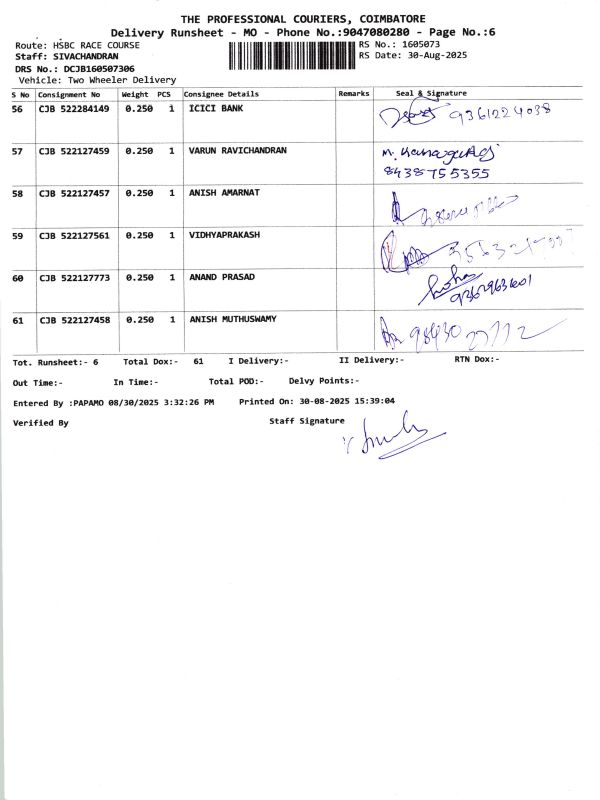 THE PROFESSIONAL COURIERS, COIMBATORE
Delivery Runsheet - MO - Phone No.:9047080280 - Page No.:6
Route: HSBC RACE COURSE
RS No.: 1605073
Staff: SIVACHANDRAN
RS Date: 30-Aug-2025
DRS No.: DCJB160507306
Vehicle: Two Wheeler Delivery
S No Consignment No Weight PCS Consignee Details Remarks Seal & Signature
56 CJB 522284149 0.250 1 ICICI BANK 9361224038
57 CJB 522127459 0.250 1 VARUN RAVICHANDRAN
8438755355
58 CJB 522127457 0.250 1 ANISH AMARNAT
59 CJB 522127561 0.250 1 VIDHYAPRAKASH
60 CJB 522127773 0.250 1 ANAND PRASAD
61 CJB 522127458 0.250 1 ANISH MUTHUSWAMY 98430 27772
Tot. Runsheet:- 6 Total Dox:- 61 I Delivery:- II Delivery:- RTN Dox:-
Out Time:- In Time:- Total POD:- Delvy Points:-
Entered By :PAPAMO 08/30/2025 3:32:26 PM Printed On: 30-08-2025 15:39:04
Verified By Staff Signature